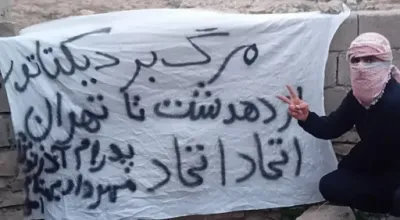 مرگ بر دیکتاتور
از دهدشت تا تهران
پدرام آذرنوش
اتحاد اتحاد مهرداد بهنام